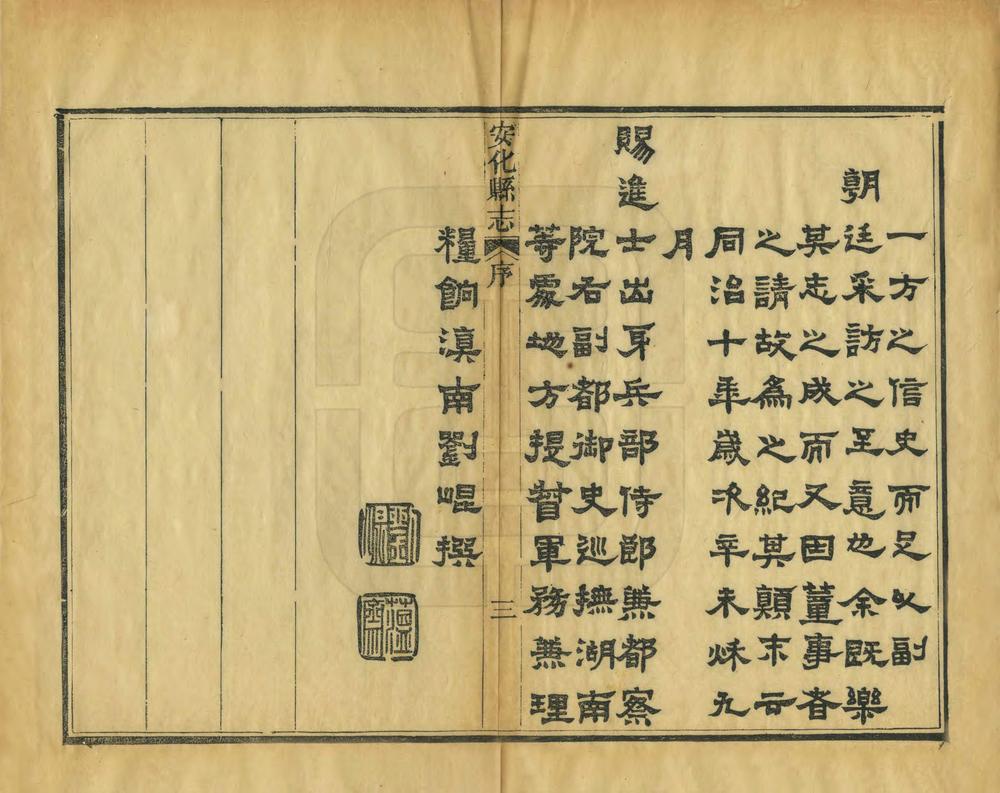 一方之信史而足以副
朝廷采訪之至意也余旣樂
其志之成而又因董事者
之請故爲之紀其顚末云
同治十年歲次辛未秌九
月
賜進士出身兵部侍郎兼都察
院右副都御史巡撫湖南
等處地方提督軍務兼理
糧餉滇南劉崐撰
安化縣志 序 三